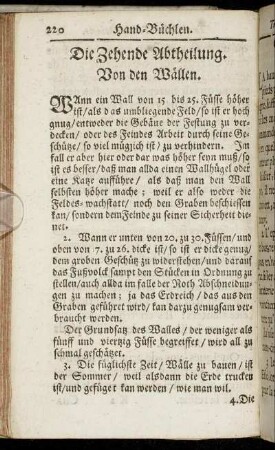 220 Hand-Büchlen.
Die Zehende Abtheilung.
Von den Wällen.
WAnn ein Wall von 15 bis 25. Füsse höher
ist/als das umbliegende Feld/so ist er hoch
gnug/entweder die Gebäue der Festung zu ver-
decken/ oder des Feindes Arbeit durch seine Ge-
schütze/ so viel müglich ist/ zu verhindern. Im
fall er aber hier oder dar was höher seyn muß/ so
ist es besser/daß man allda einen Wallhügel oder
eine Katze aufführe/ als daß man den Wall
selbsten höher mache; weil er also weder die
Feldes-wachstatt/ noch den Graben beschiessen
kan/ sondern dem Feinde zu seiner Sicherheit die-
net.
2. Wann er unten von 20. zu 30. Füssen/ und
oben von 7. zu 26. dicke ist/ so ist er dicke genug/
dem groben Geschütz zu widerstehen/und darauf
das Fußvolck sampt den Stücken in Ordnung zu
stellen/auch allda im falle der Noth Abschneidun-
gen zu machen; ja das Erdreich/ das aus den
Graben geführet wird/ kan darzu genugsam ver-
braucht werden.
Der Grundsatz des Walles/ der weniger als
fünff und viertzig Füsse begreiffet/ wird all zu
schmal geschätzet.
3. Die füglichste Zeit/ Wälle zu bauen/ ist
der Sommer/ weil alsdann die Erde trucken
ist/und gefüget kan werden/ wie man wil.
4. Die